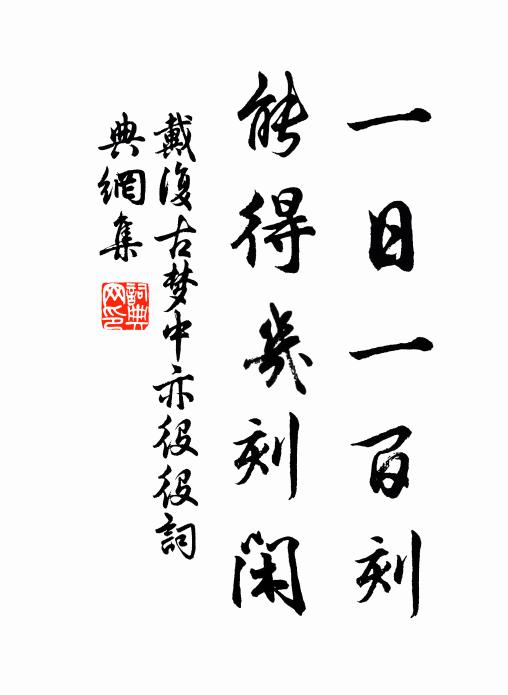 一日一百刻
能得幾刻閑
戴復古梦中亦役役詞
典網集
詞典
网印